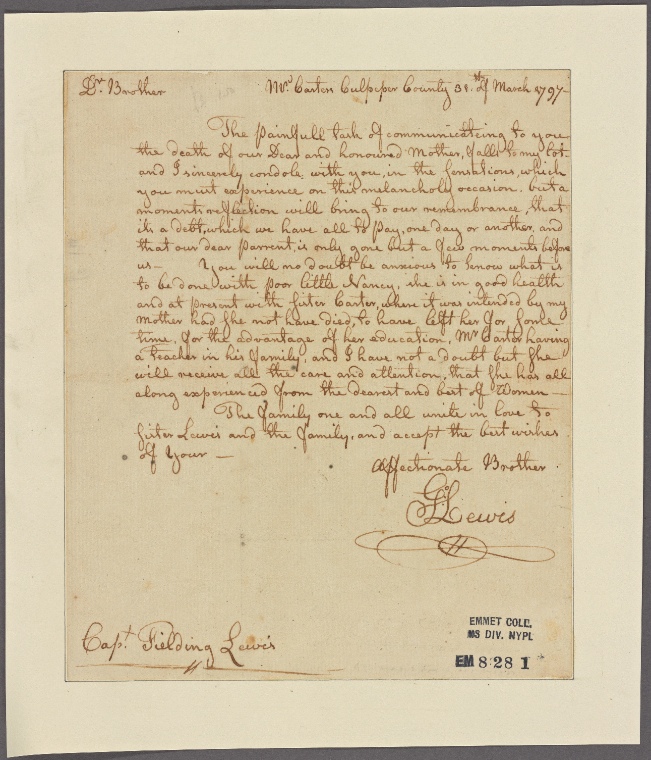 Dr. Brother
Mr. Carters Culpeper County 31st of March 1797-
The painfull task of communicateing to you
the death of our Dear and honoured Mother, falls to my lot-
and I sincerely condole with you, in the sensations, which
you must experience on this melancholy occasion, but a
moments reflection will bring to our remembrance, that
its a debt, which we have all to pay, one day or another, and
that our dear parrent, is only gone but a few moments before
us— You will no doubt be anxious to know what is
to be done with poor little Nancy, she is in good health
and at present with Sister Carter, where it was intended by my
Mother had she not have died, to have left her for some
time, for the advantage of her education, Mr Carter having
a teacher in his family, and I have not a doubt but she
will receive all the care and attention, that she has all
along experienced from the dearest and best of Women—
The family one and all unite in love to
Sister Lewis and the family, and accept the best wishes
of your —
affectionate Brother
Go Lewis
Capt. Fielding Lewis
EMMET COLL.
MS DIV. NYPL
EM 8281